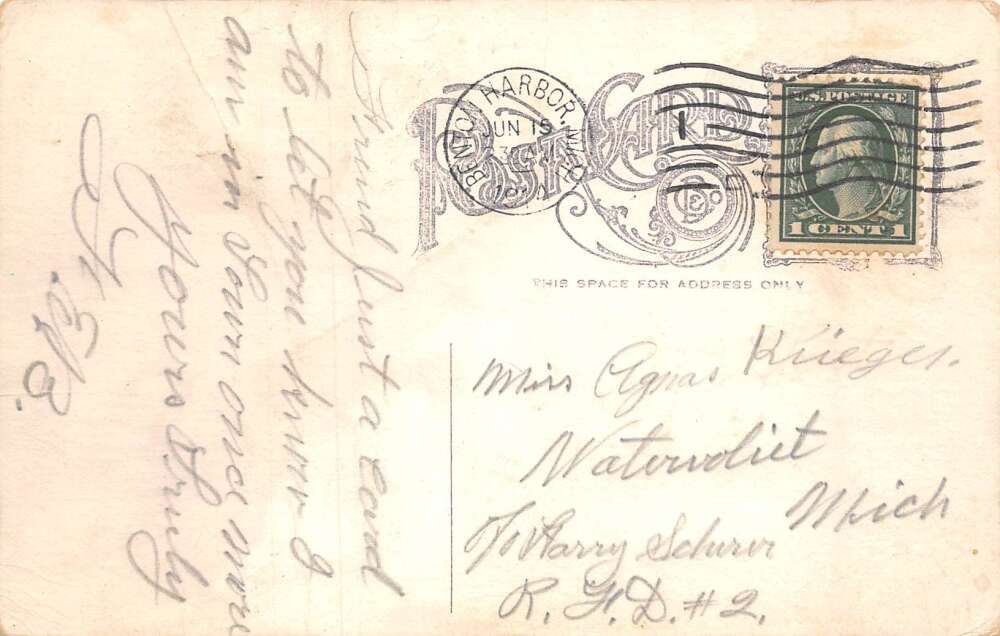 Friend Just a Card
to let you know I
am in Town once more
Yours Truly
BENTON HARBOR, MICH.
JUN 15
POST CARD
U.S. POSTAGE
1 CENT 1
THIS SPACE FOR ADDRESS ONLY
Miss Agnas Krieger.
Watervliet
Mich
℅ Harry Scherer
R. F. D. # 2.